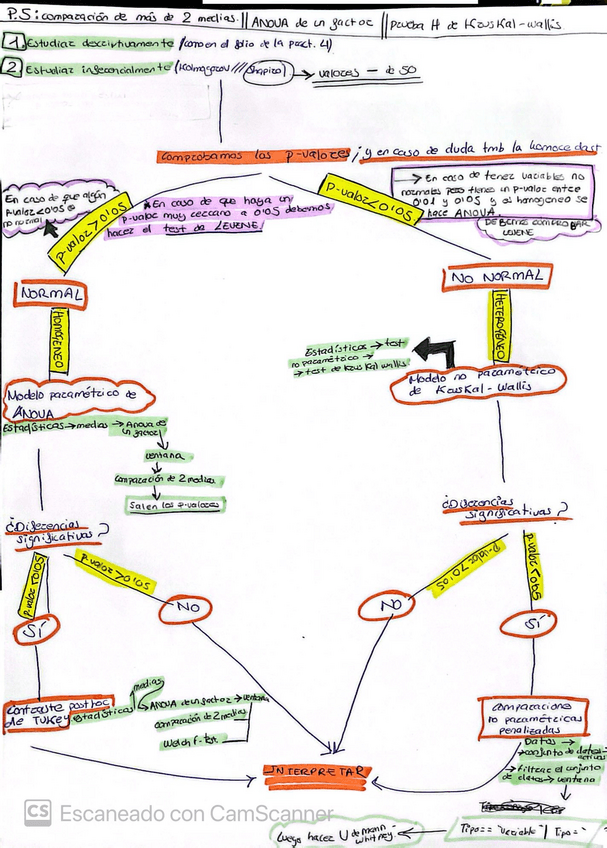 P.5: comparación de más de 2 medias. || ANOVA de un factor || prueba H de Kruskal-Wallis
1. Estudiar descriptivamente (como en el folio de la pract. 4)
2 Estudiar inferencialmente (Kolmogorov /// Shapiro) → valores - de 50
Comprobamos los p-valores; y en caso de duda tmb la homocedast
En caso de que algún
p-valor<0'05 es
no normal
p-valor>0'05
* En caso de que haya un
p-valor muy cercano a 0'05 debemos
hacer el test de LEVENE
p-valor<0'05
→ En caso de tener variables no
normales pero tienen un p-valor entre
0'01 y 0'05 y si homogéneo se
hace ANOVA.
DEBEMOS COMPROBAR
LEVENE
NORMAL
NO NORMAL
HOMOGÉNEO
HETEROGÉNEO
Estadísticos → test
no paramétrico →
→ test de Kruskal wallis
Modelo no paramétrico
de Kruskal-Wallis
Modelo paramétrico de
ANOVA
Estadísticos → medias → Anova de
un factor
ventana
comparación de 2 medias
Salen los p-valores
¿Diferencias
significativas?
¿Diferencias
significativas?
p-valor<0'05
p-valor>0'05
p-valor>0'05
p-valor<0'05
SÍ
NO
NO
SÍ
Contraste posthoc
de TUKEY
Estadísticos
medias
ANOVA de un factor → ventana
comparación de 2 medias
Welch F-test
comparaciones
no paramétricas
penalizadas
Datos →
→ conjunto de datos
activos
→ Filtrar el conjunto
de datos → ventana
INTERPRETAR
Tipo == "variable" | Tipo =
Luego hacer U de mann-
whitney.
CS Escaneado con CamScanner